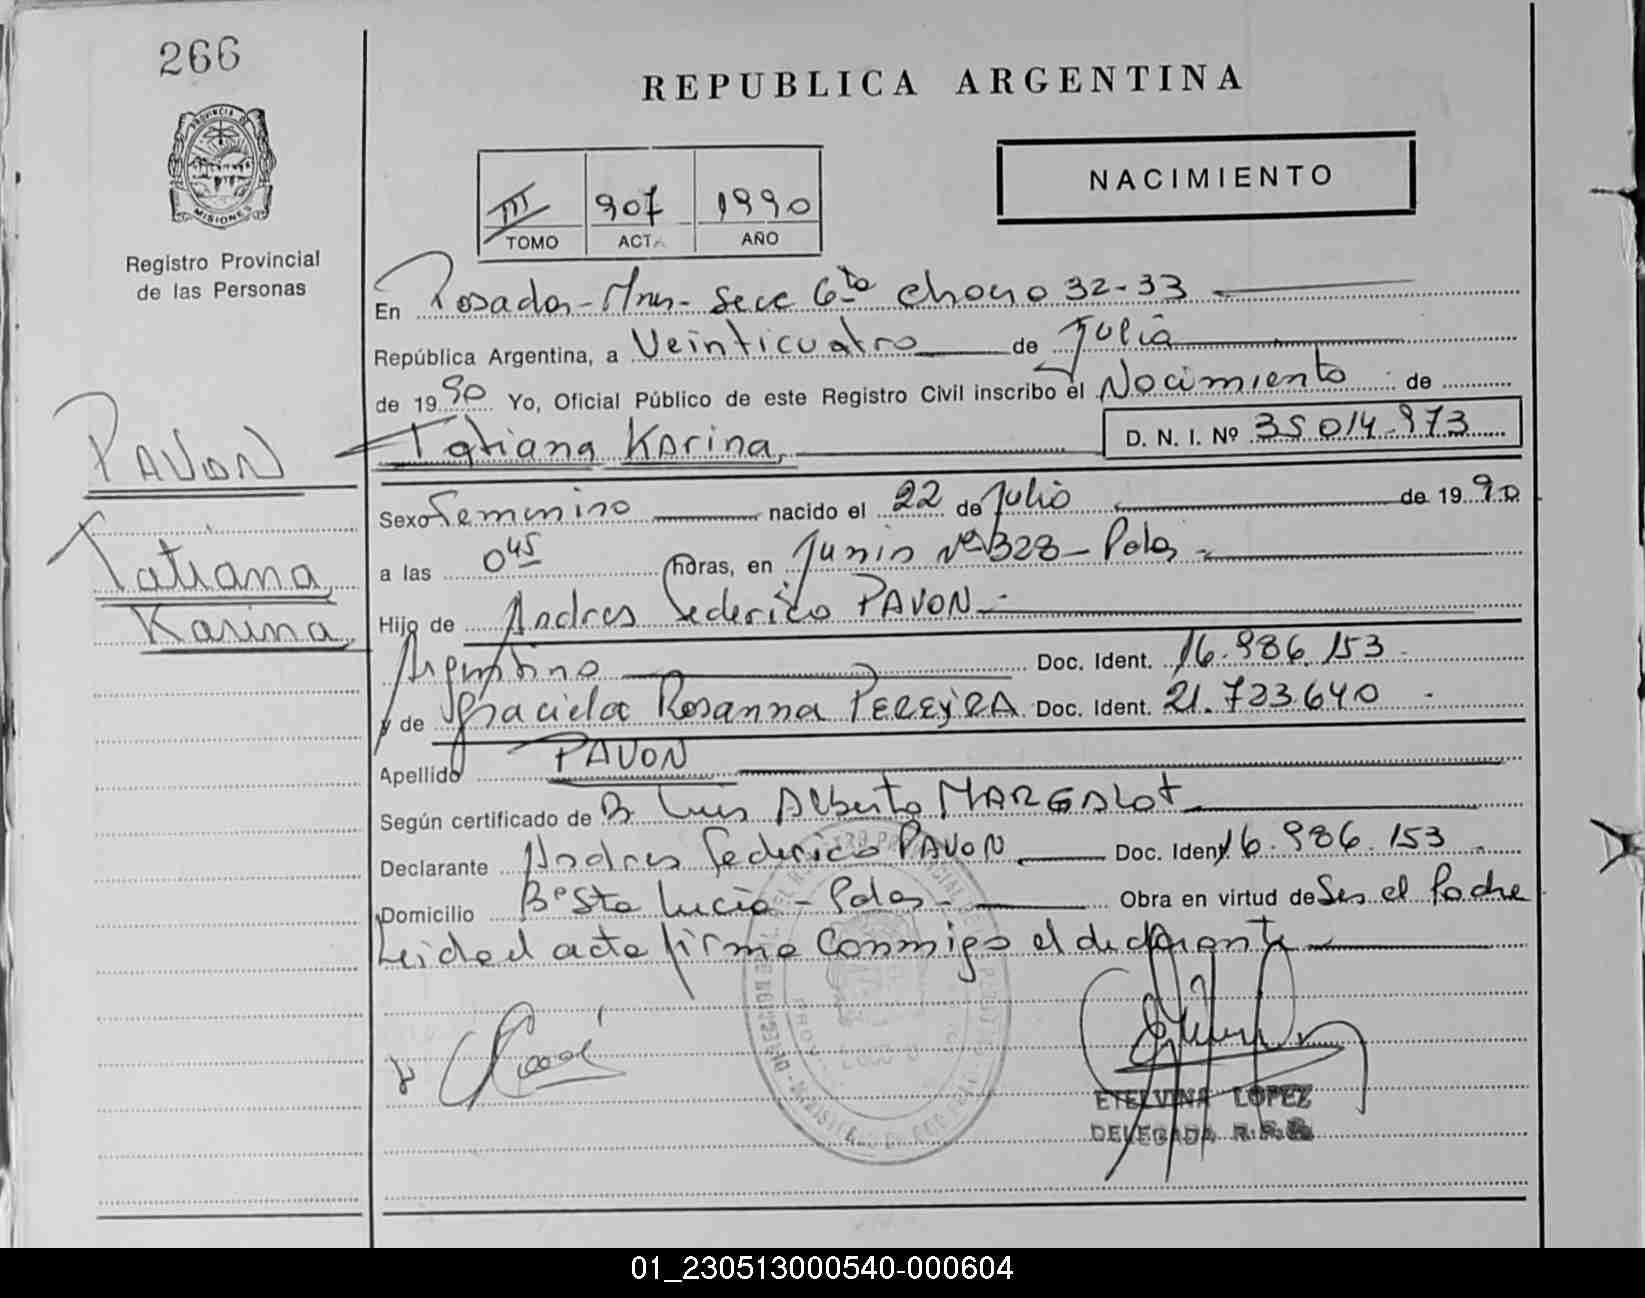 266
REPUBLICA ARGENTINA
PROVINCIA DE
MISIONES
Registro Provincial
de las Personas
III 907 1990
TOMO ACTA AÑO
NACIMIENTO
En Posadas - Mnes - Secc 6ta chacra 32-33
República Argentina, a Veinticuatro de Julio
de 1990 Yo, Oficial Público de este Registro Civil inscribo el Nacimiento de
Tatiana Karina, D. N. I. Nº 35.014.973
PAVON
Tatiana
Karina,
Sexo Femenino nacido el 22 de Julio de 1990
a las 0 45 horas, en Junin Nº 328 - Pdas -
Hijo de Andres Federico PAVON -
Argentino Doc. Ident. 16.986.153 -
y de Graciela Rosanna PEREYRA Doc. Ident. 21.723.640 -
Apellido PAVON
Según certificado de Dr Luis Alberto MARGALOT
Declarante Andres Federico PAVON Doc. Ident 16.986.153
Domicilio Bº Sta Lucia - Pdas - Obra en virtud de Ser el Padre
Leida el acta firma conmigo el declarante
ETELVINA LOPEZ
DELEGADA R.P.P.
01_230513000540-000604